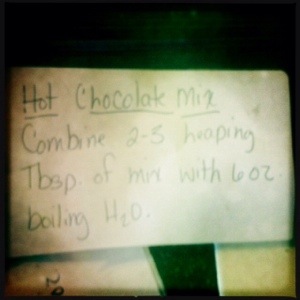 Hot Chocolate Mix
Combine 2-3 heaping
Tbsp. of mix with 6oz.
boiling H₂O.